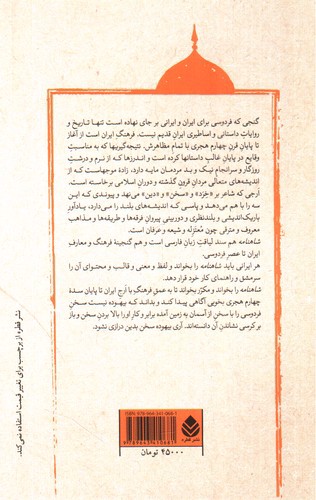 گنجی که فردوسی برای ایران و ایرانی بر جای نهاده است تنها تاریخ و
روایات داستانی و اساطیری ایرانِ قدیم نیست. فرهنگِ ایران است از آغاز
تا پایانِ قرنِ چهارم هجری با تمام مظاهرش. نتیجه‌گیریها که به مناسبتِ
وقایع در پایانِ غالبِ داستانها کرده است و اندرزها که از نرم و درشتِ
روزگار و سرانجامِ نیک و بدِ مردان مایه دارد، زادهٔ موجهاست که از
اندیشه‌های متعالی مردانِ قرونِ گذشته و دورانِ اسلامی برخاسته است.
ارجی که شاعر بر «خِرَد» و «سخن» و «دین» می‌نهد و پیوندی که این
سه را با هم می‌دهد و پاسی که اندیشه‌های بلند را می‌دارد، یادآورِ
باریک‌اندیشی و بلندنظری و دوربینی پیروانِ فرقه‌ها و طریقه‌ها و مذاهبِ
معروف و مترقی چون مُعتَزِله و شیعه و عرفان است.
شاهنامه هم سندِ لیاقتِ زبان فارسی است و هم گنجینهٔ فرهنگ و معارفِ
ایران تا عصرِ فردوسی.
هر ایرانی باید شاهنامه را بخواند و لفظ و معنی و قالب و محتوای آن را
سرمشق و راهنمای کار خود قرار دهد.
شاهنامه را بخواند و مکرّر بخواند تا به عمقِ فرهنگِ با ارج ایران تا پایان سدهٔ
چهارم هجری بخوبی آگاهی پیدا کند و بداند که بیهوده نیست سخنِ
فردوسی را با سخنِ از آسمان به زمین آمده برابر و کارِ او را بالا بردنِ سخن و باز
بر کرسی نشاندنِ آن دانسته‌اند. آری بیهوده سخن بدین درازی نشود.
نشر قطره از برچسب برای تغییر قیمت استفاده نمی‌کند.
ISBN: 978-964-341-068-1
9789643410681
نشر قطره
۴۵۰۰۰ تومان